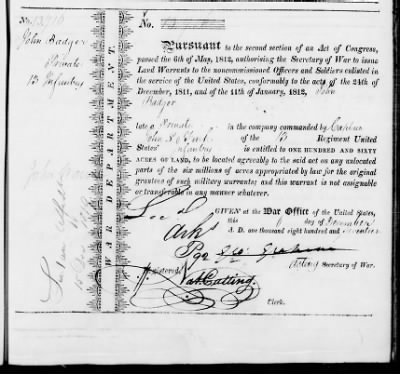 John Badger
Private
13 Infantry
WAR DEPARTMENT.
No.
Pursuant to the second section of an Act of Congress,
passed the 6th of May, 1812, authorising the Secretary of War to issue
Land Warrants to the noncommissioned Officers and Soldiers enlisted in
the service of the United States, conformably to the acts of the 24th of
December, 1811, and of the 11th of January, 1812, John
Badger
late a Private in the company commanded by Captain
of the 13 Regiment United
States' Infantry is entitled to ONE HUNDRED AND SIXTY
ACRES OF LAND, to be located agreeably to the said act on any unlocated
parts of the six millions of acres appropriated by law for the original
grantees of such military warrants; and this warrant is not assignable
or transferable in any manner whatever.
GIVEN at the War Office of the United States,
this day of December
A. D. one thousand eight hundred and seventeen
Geo. Graham
Acting Secretary of War.
Registered
Nat. Cutting.
Clerk.